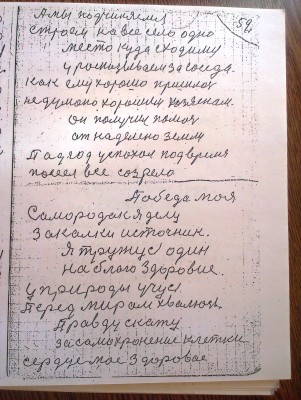 А мы подчиняемся 59.
строем на все село одно
место куда сходиму
у расхваливаем за соседа.
Как ему хорошо пришлось
не думано хорошим хозяенам.
Он получил помощ
от наделено земли
Подход успохол под время
посеел все созрело
Победа моя
Самородок я делу
Закалки источник.
Я тружус один
на благо здоровие.
у природы учус
Перед миром хвалюсь.
Правду скажу
за самохронение клетки
сердце мое здоровое